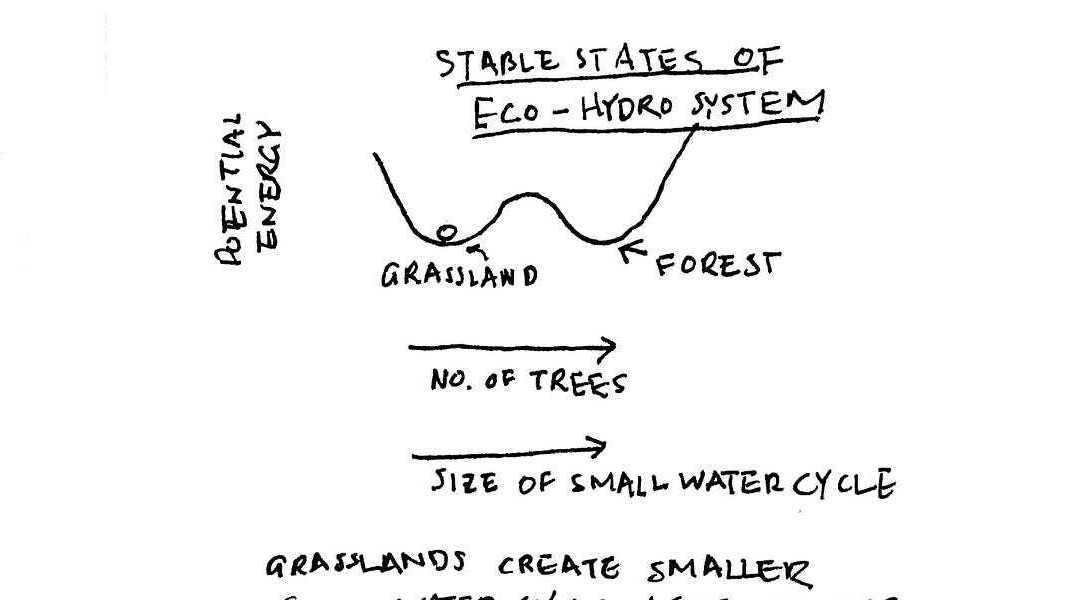 STABLE STATES OF
ECO-HYDRO SYSTEM
POTENTIAL
ENERGY
GRASSLAND
FOREST
NO. OF TREES
SIZE OF SMALL WATER CYCLE
GRASSLANDS CREATE SMALLER
WATER